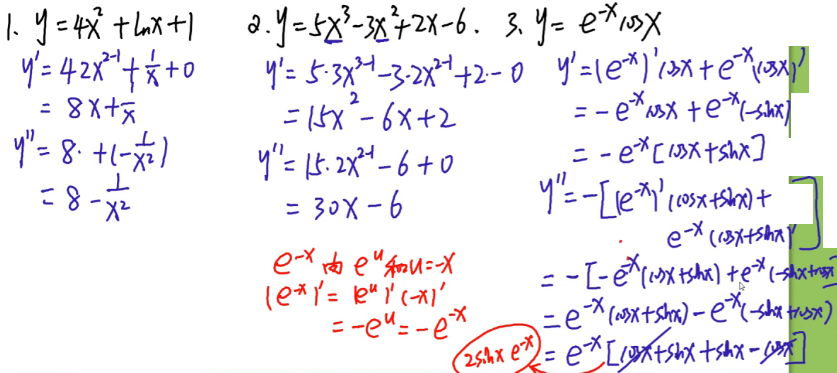 1. y=4x²+lnx+1
y'=4·2x²⁻¹+1/x+0
=8x+1/x
y''=8·+(-1/x²)
=8-1/x²
2. y=5x³-3x²+2x-6.
y'=5·3x³⁻¹-3·2x²⁻¹+2·-0
=15x²-6x+2
y''=15·2x²⁻¹-6+0
=30x-6
e⁻ˣ由eᵘ和u=-x
(e⁻ˣ)'=(eᵘ)'(-x)'
=-eᵘ=-e⁻ˣ
3. y=e⁻ˣcosx
y'=(e⁻ˣ)'cosx+e⁻ˣ(cosx)'
=-e⁻ˣcosx+e⁻ˣ(-sinx)
=-e⁻ˣ[cosx+sinx]
y''=-[(e⁻ˣ)'(cosx+sinx)+
e⁻ˣ(cosx+sinx)']
=-[-e⁻ˣ(cosx+sinx)+e⁻ˣ(-sinx+cosx)]
=e⁻ˣ(cosx+sinx)-e⁻ˣ(-sinx+cosx)
=e⁻ˣ[cosx+sinx+sinx-cosx]
2sinx e⁻ˣ